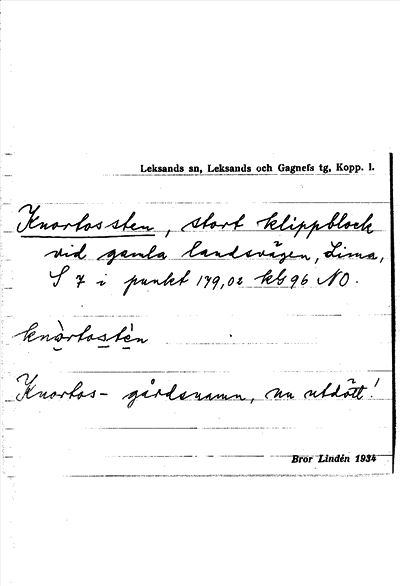 Leksands sn, Leksands och Gagnefs tg, Kopp. l.
Knortossten, stort klippblock
vid gamla landsvägen, Lima,
S 7 i punkt 179,02 kb 96 NO.
knòrtostèn
Knortos- gårdsnamn, nu utdött!
Bror Lindén 1934